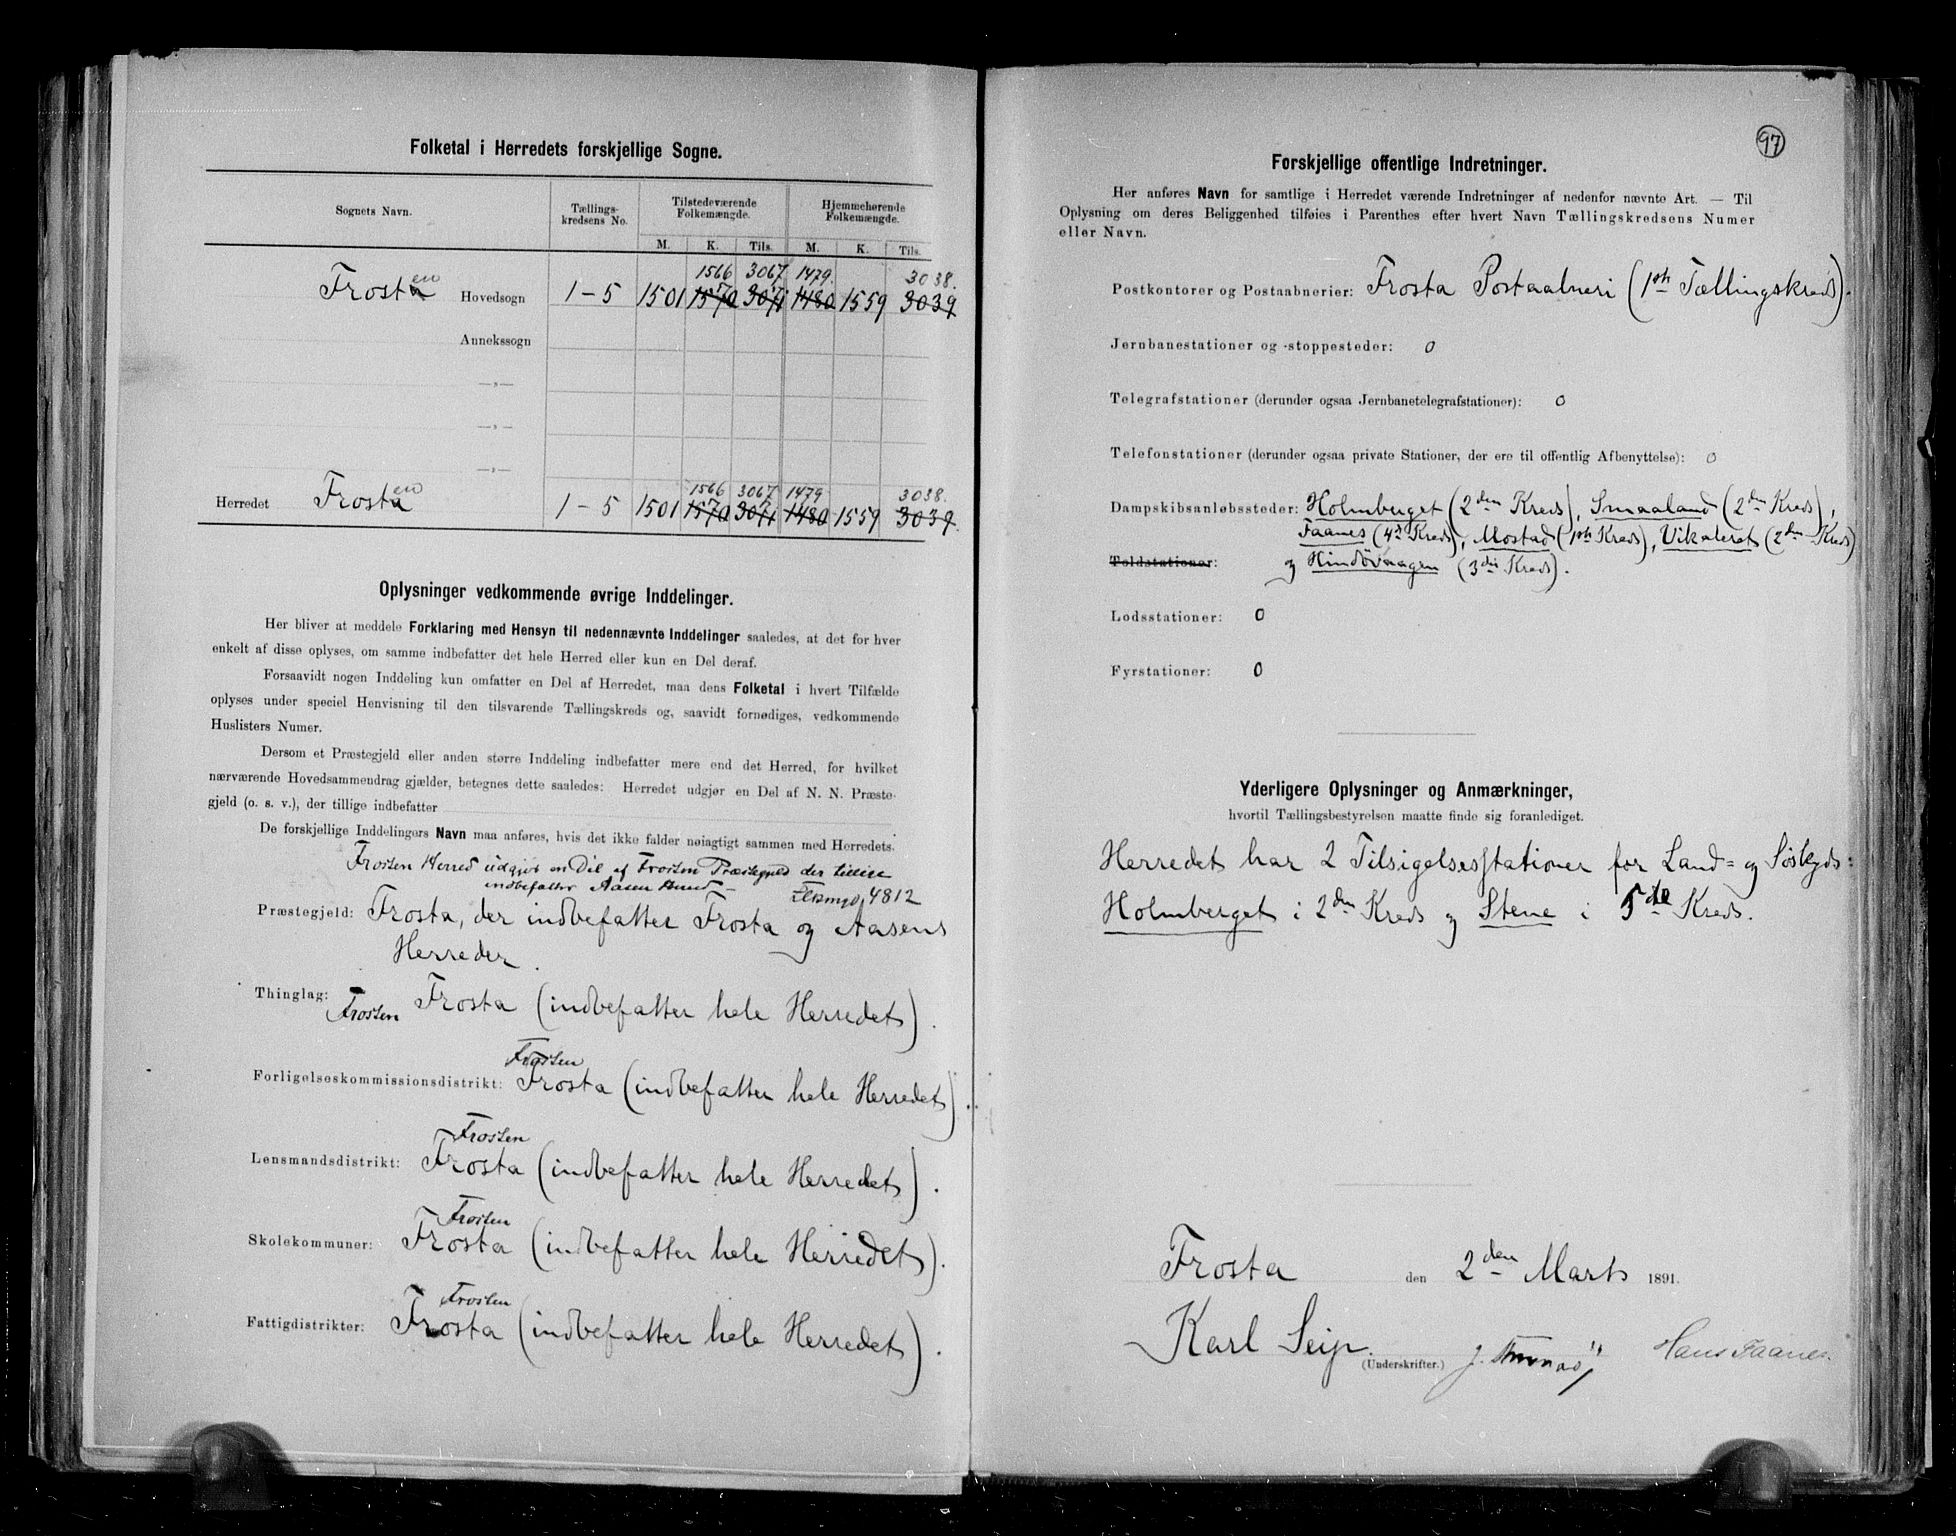 Folketal i Herredets forskjellige Sogne.
Sognets Navn. Tællings- Tilstedeværende Hjemmehørende
kredsens No. Folkemængde. Folkemængde.
M. K. Tils. M. K. Tils.
en 1566 3067 1479 3038.
Frosta Hovedsogn 1-5 1501 1570 3071 1480 1559 3039
Annekssogn
—„—
—„—
—„—
en 1566 3067 1479 3038.
Herredet Frosta 1-5 1501 1570 3071 1480 1559 3039.
Oplysninger vedkommende øvrige Inddelinger.
Her bliver at meddele Forklaring med Hensyn til nedennævnte Inddelinger saaledes, at det for hver
enkelt af disse oplyses, om samme indbefatter det hele Herred eller kun en Del deraf.
Forsaavidt nogen Inddeling kun omfatter en Del af Herredet, maa dens Folketal i hvert Tilfælde
oplyses under speciel Henvisning til den tilsvarende Tællingskreds og, saavidt fornødiges, vedkommende
Huslisters Numer.
Dersom et Præstegjeld eller anden større Inddeling indbefatter mere end det Herred, for hvilket
nærværende Hovedsammendrag gjælder, betegnes dette saaledes: Herredet udgjør en Del af N. N. Præste-
gjeld (o. s. v.), der tillige indbefatter
De forskjellige Inddelingers Navn maa anføres, hvis det ikke falder nøiagtigt sammen med Herredets.
Frosten Herred udgjør en Del af Frosten Præstegjeld der tillige
indbefatter Aasen Herred -
4812
Præstegjeld: Frosta, der indbefatter Frosta og Aasens
Herreder.
Thinglag: Frosta (indbefatter hele Herredet).
Frosten
Frosten
Forligelseskommissionsdistrikt: Frosta (indbefatter hele Herredet).
Frosten
Lensmandsdistrikt: Frosta (indbefatter hele Herredet).
Frosten
Skolekommuner: Frosta (indbefatter hele Herredet).
Frosten
Fattigdistrikter: Frosta (indbefatter hele Herredet).
97
Forskjellige offentlige Indretninger.
Her anføres Navn for samtlige i Herredet værende Indretninger af nedenfor nævnte Art. — Til
Oplysning om deres Beliggenhed tilføies i Parenthes efter hvert Navn Tællingskredsens Numer
eller Navn.
Postkontorer og Postaabnerier: Frosta Postaabneri (1ste Tællingskreds).
Jernbanestationer og -stoppesteder: 0
Telegrafstationer (derunder ogsaa Jernbanetelegrafstationer): 0
Telefonstationer (derunder ogsaa private Stationer, der ere til offentlig Afbenyttelse): 0
Dampskibsanløbssteder: Holmberget (2den Kreds), Smaaland (2den Kreds),
Faanes (4de Kreds), Mostad (1ste Kreds), Vikaleret (2den Kreds)
Toldstationer: og Hindövaagen (3die Kreds).
Lodsstationer: 0
Fyrstationer: 0
Yderligere Oplysninger og Anmærkninger,
hvortil Tællingsbestyrelsen maatte finde sig foranlediget.
Herredet har 2 Tilsigelsesstationer for Land= og Söskyds:
Holmberget i 2den Kreds og Stene i 5te Kreds.
Frosta den 2den Marts 1891.
Karl Seip. Hans Faanes.
(Underskrifter.)